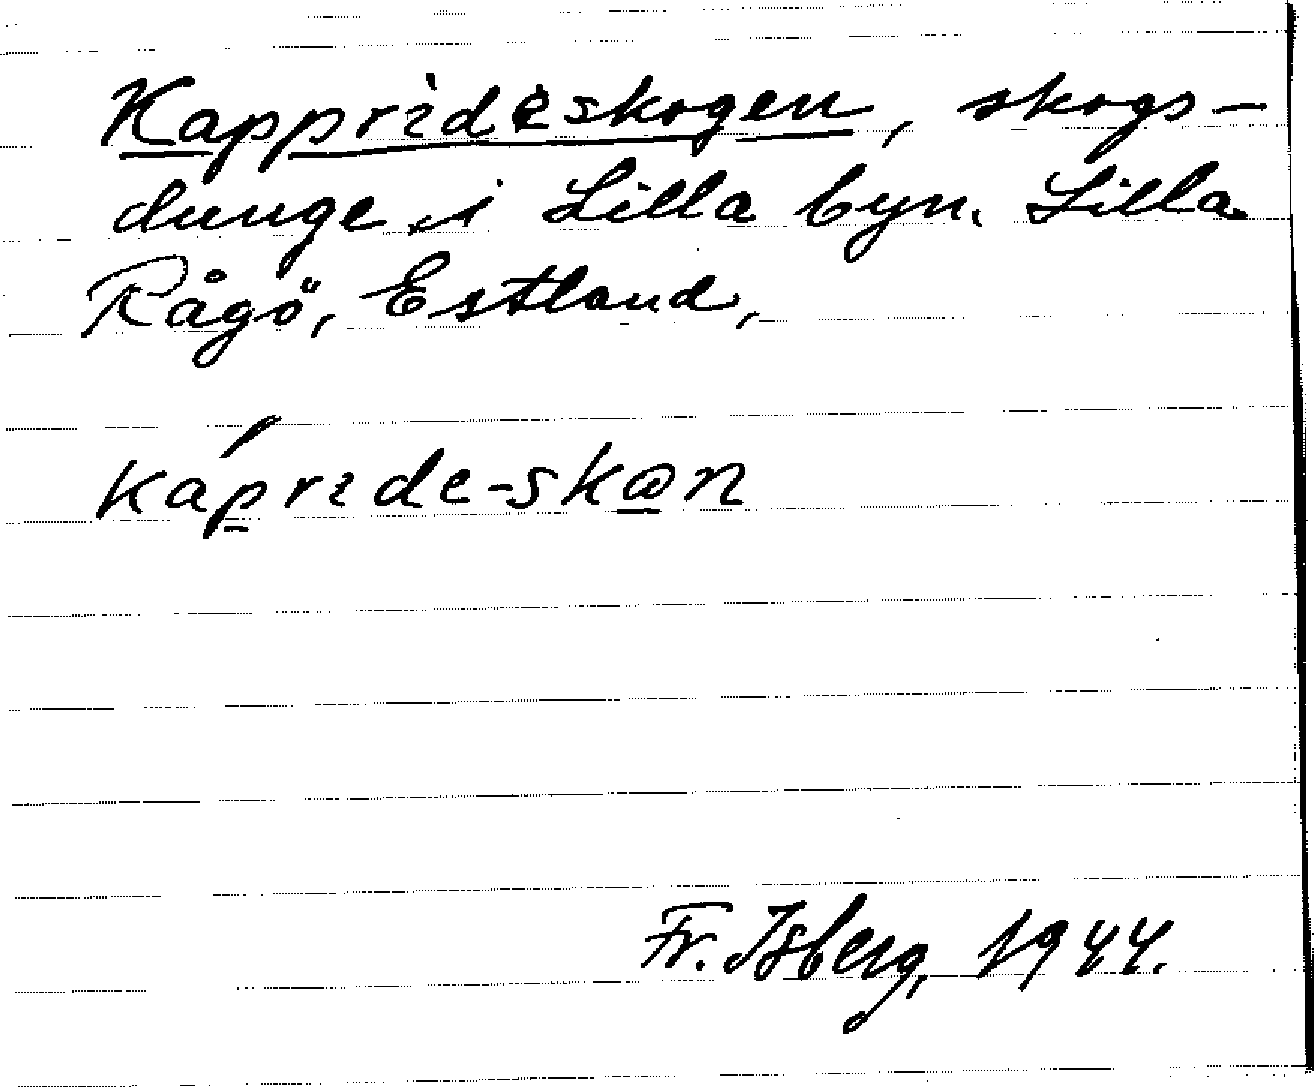 Kapprideskogen, skogs-
dunge i Lilla byn. Lilla
Rågö, Estland,
kapride-sk@n
Fr. Isberg, 1944.